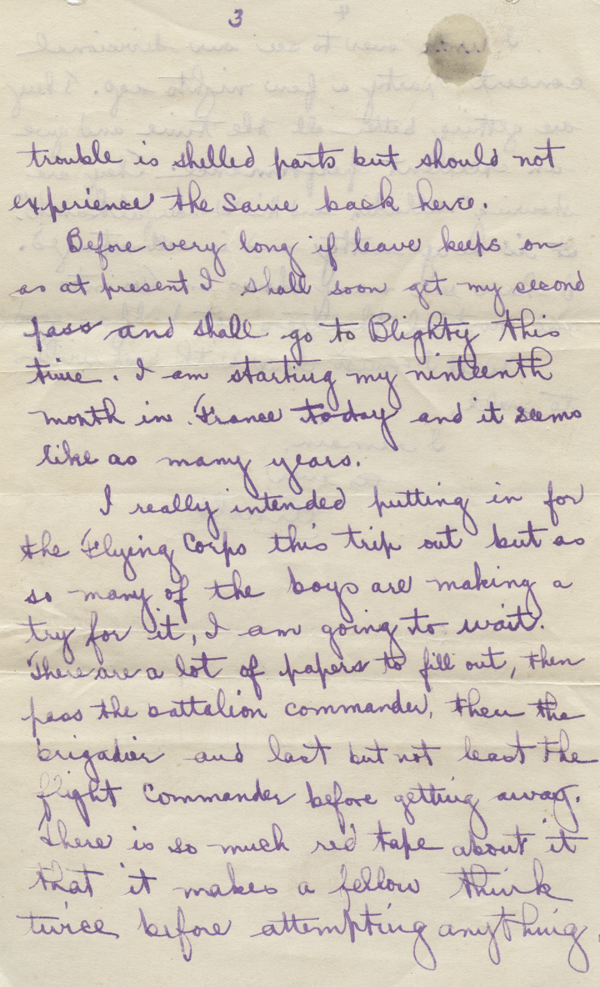 3
trouble is shelled parts but should not
experience the same back here.
Before very long if leave keeps on
as at present I shall soon get my second
pass and shall go to Blighty this
time. I am starting my ninteenth
month in France today and it seems
like as many years.
I really intended putting in for
the Flying Corps this trip out but as
so many of the boys are making a
try for it, I am going to wait.
There are a lot of papers to fill out, then
pass the battalion commander, then the
brigadier and last but not least the
flight commander before getting away.
There is so much red tape about it
that it makes a fellow think
twice before attempting anything.